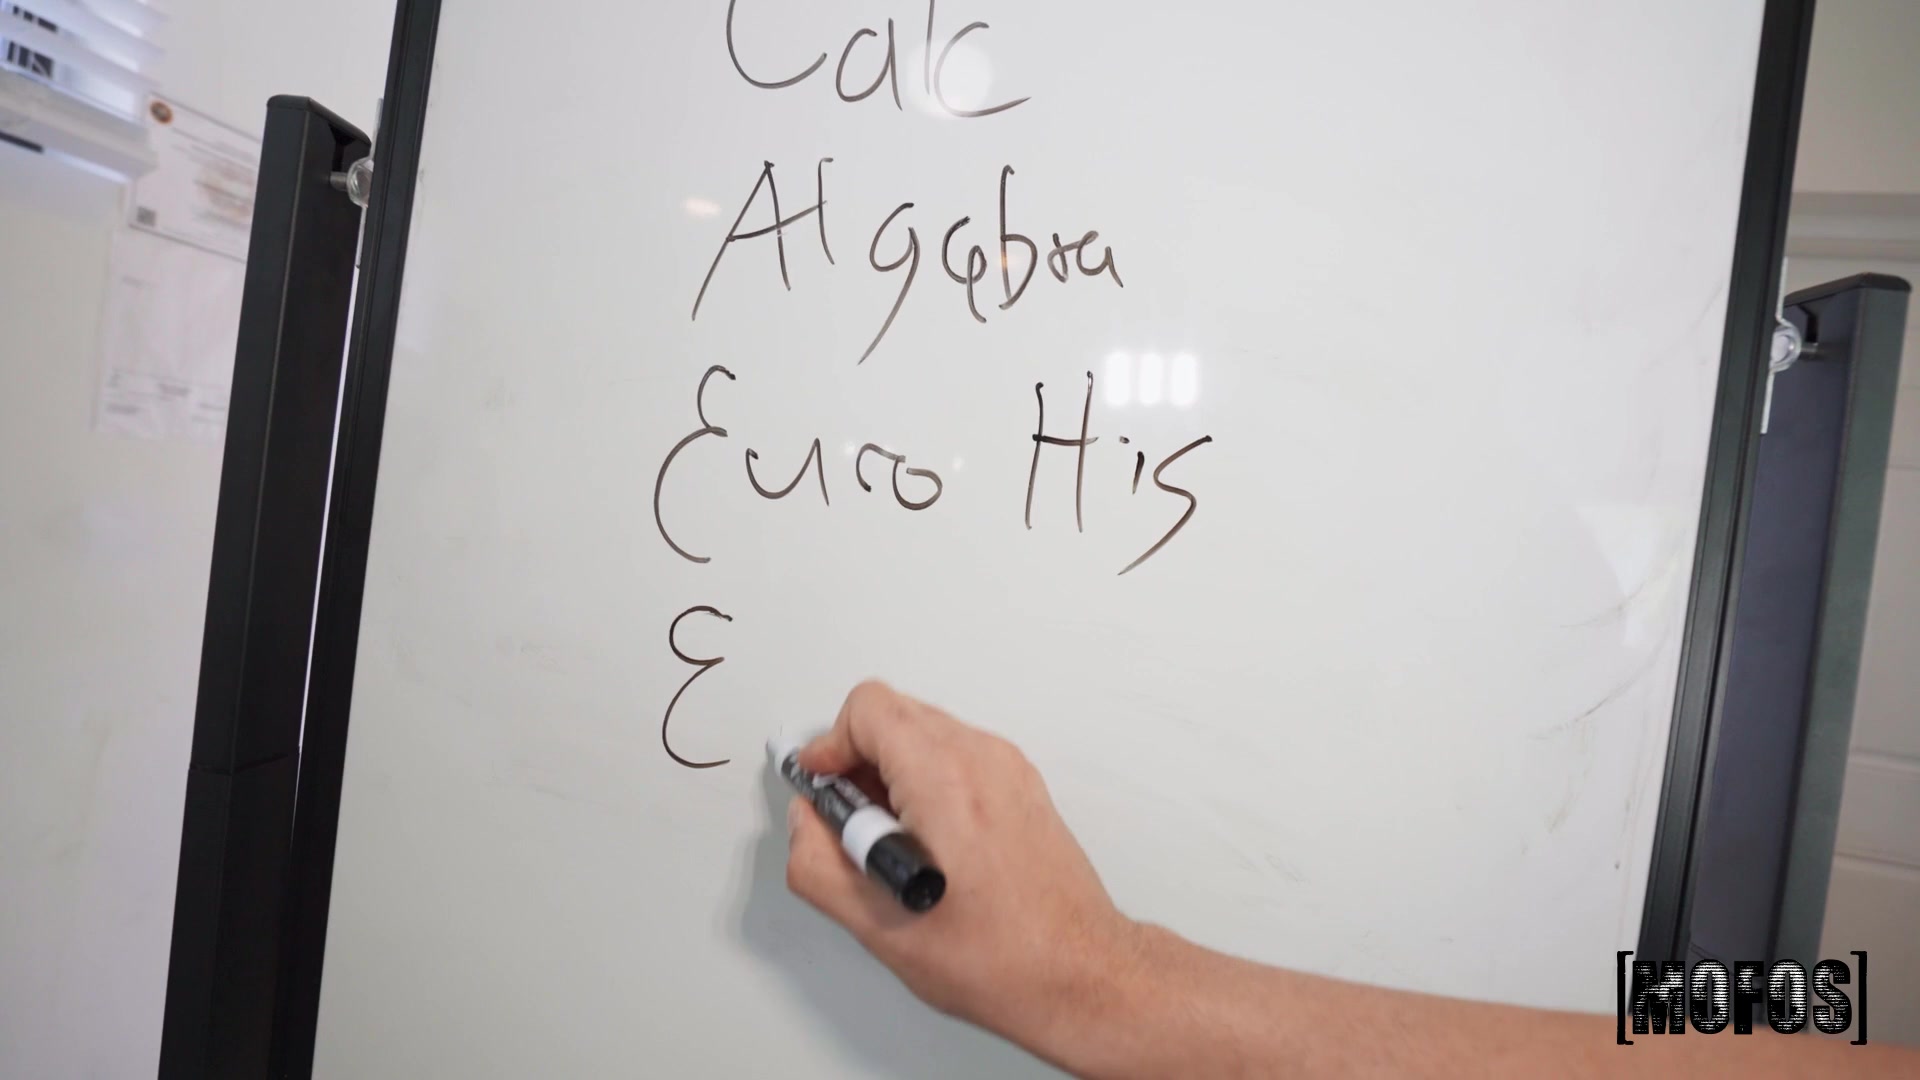 Calc
Algebra
Euro His
E
[MOFOS]